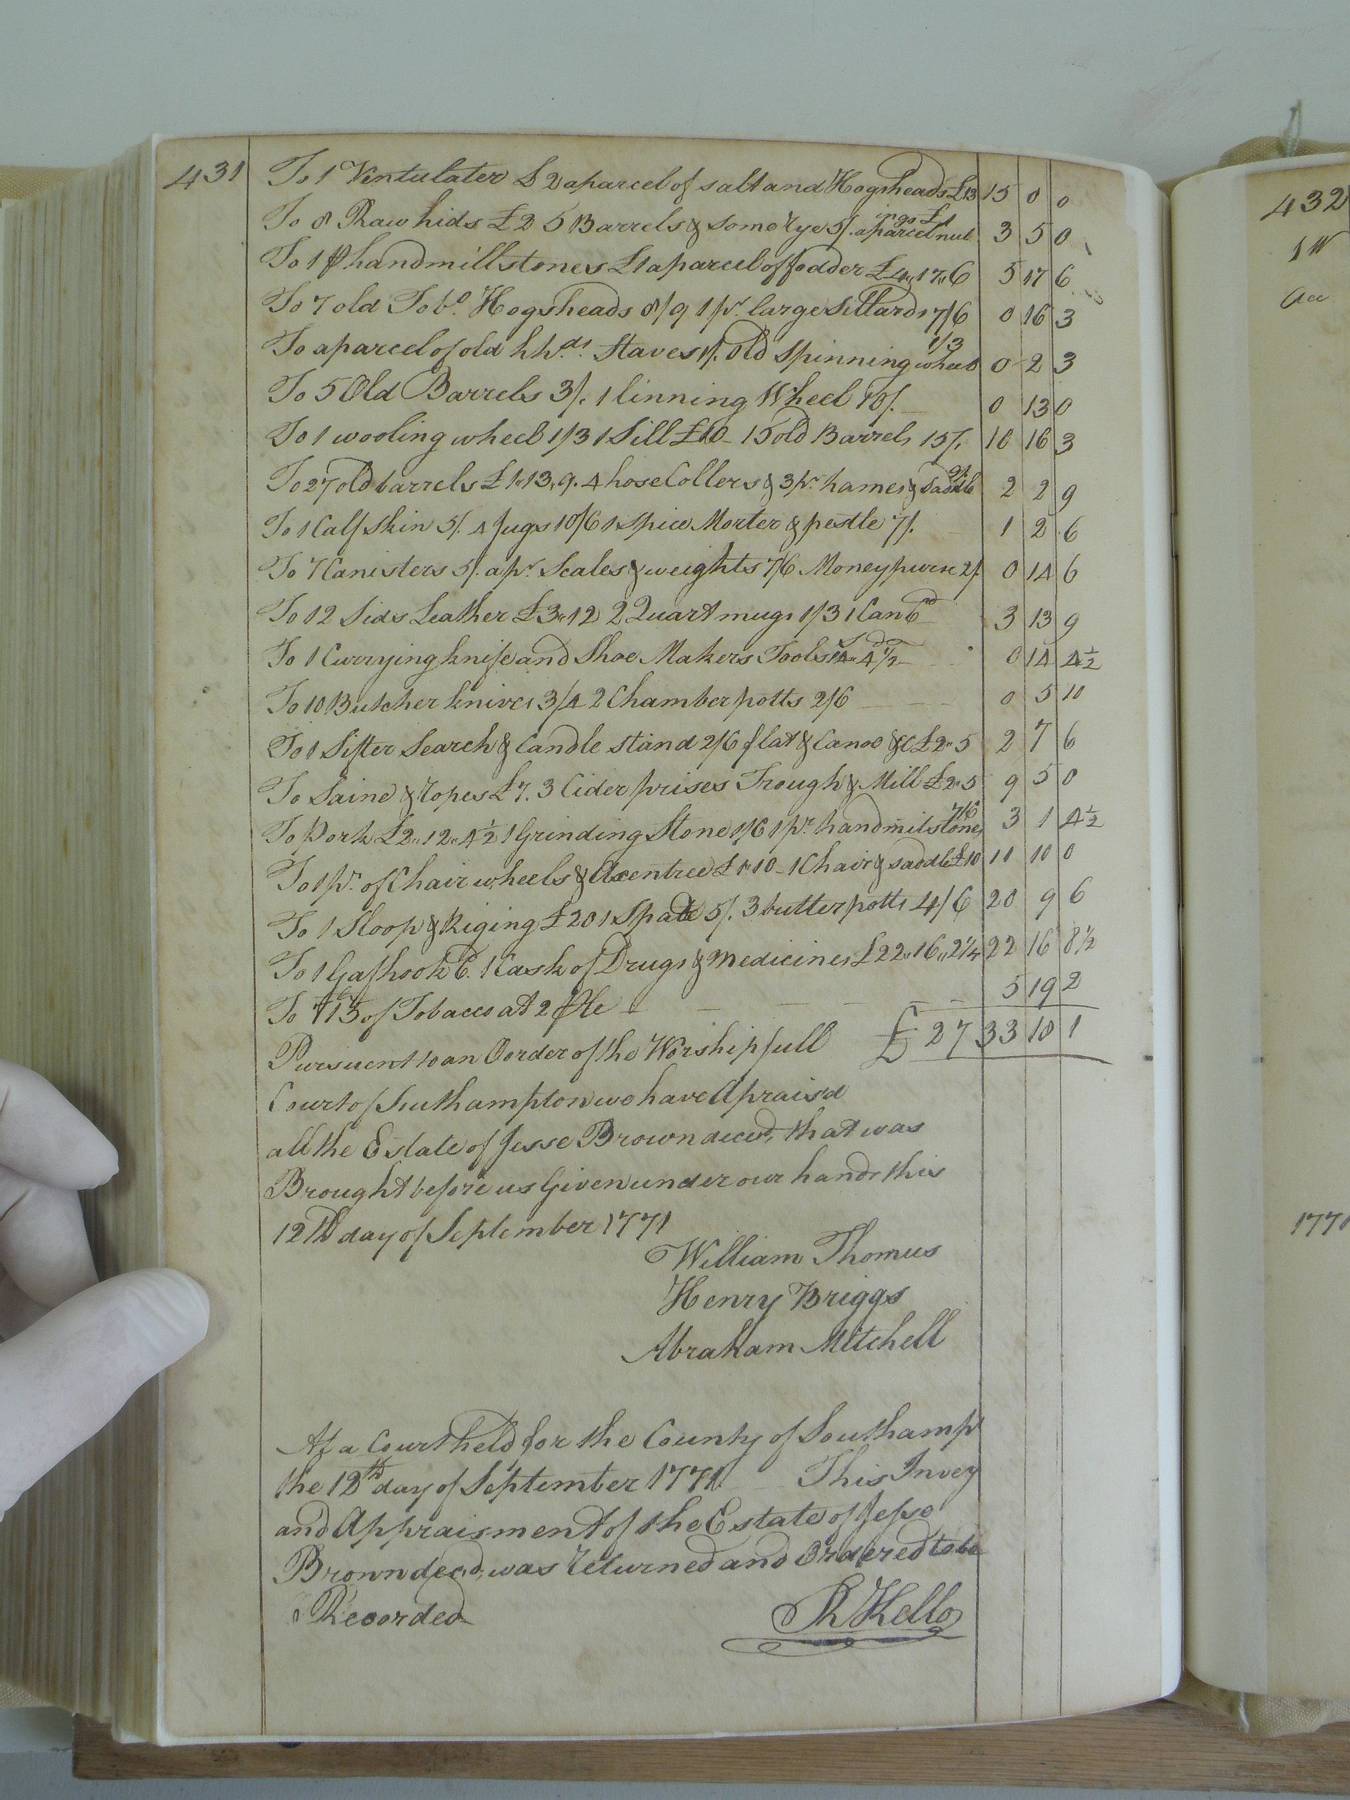 431
To 1 Ventulater £2 a parcel of salt and Hogsheads £13 15 0 0
To 8 Raw hids £2 5 Barrels & some Rye 5/. a parcel nut ingo £1 3 5 0
To 1 pr handmillstones £1 a parcel of fodder £4,,17,,6 5 17 6
To 7 old Tobo. Hogsheads 8/9 1 pr. large Sillards 7/6 0 16 3
To a parcel of old hhds. Staves 1/. Old Spinning wheel 1/3 0 2 3
To 5 Old Barrels 3/. 1 linning Wheel 10/. 0 13 0
To 1 wooling wheel 1/3 1 Sill £10 - 15 old Barrels 15/. 10 16 3
To 27 old barrels £1,,13,,9. 4 hose Collers & 3 pr. hames & saddle 9/. 2 2 9
To 1 Calf skin 5/. 4 Jugs 10/6 1 spice Morter & pestle 7/. 1 2 6
To 7 Canisters 5/. a pr. Scales & weights 7/6 Money purse 2/. 0 14 6
To 12 Sids Leather £3,,12 2 Quart mugs 1/3 1 Can 6d 3 13 9
To 1 Currying knife and Shoe Makers Tools 14s 4d½ 0 14 4½
To 10 Butcher knives 3/4 2 Chamber potts 2/6 0 5 10
To 1 Sifter Search & Candle stand 2/6 flat & Canoe &C £2,,5 2 7 6
To Saine & Ropes £7. 3 Cider prises Trough & Mill £2,,5 9 5 0
To Pork £2,,12,,4½ 1 Grinding Stone 1/6 1 pr. handmilstones 7/6 3 1 4½
To 1 pr. of Chair wheels & Axentree £1,,10 - 1 Chair & saddle £10 11 10 0
To 1 Sloop & Riging £20 1 Spade 5/. 3 butter potts 4/6 20 9 6
To 1 Gafhook 6. 1 Cask of Drugs & Medicines £22,,16,,2¼ 22 16 8½
To 715 of Tobacco at 2 ⅌ le 5 19 2
Pursuent to an Oorder of the Worshipfull £2733 10 1
Court of Southampton we have Apraisd
all the Estate of Jesse Brown decd, that was
Brought before us Given under our hands this
12th day of September 1771
William Thomus
Henry Briggs
Abraham Mitchell
At a Court held for the County of Southamp
the 12th day of September 1771. This Invey
and Appraisment of the Estate of Jesse
Brown decd, was returned and Ordered to be
Recorded
R Kello
432
1 W
1771